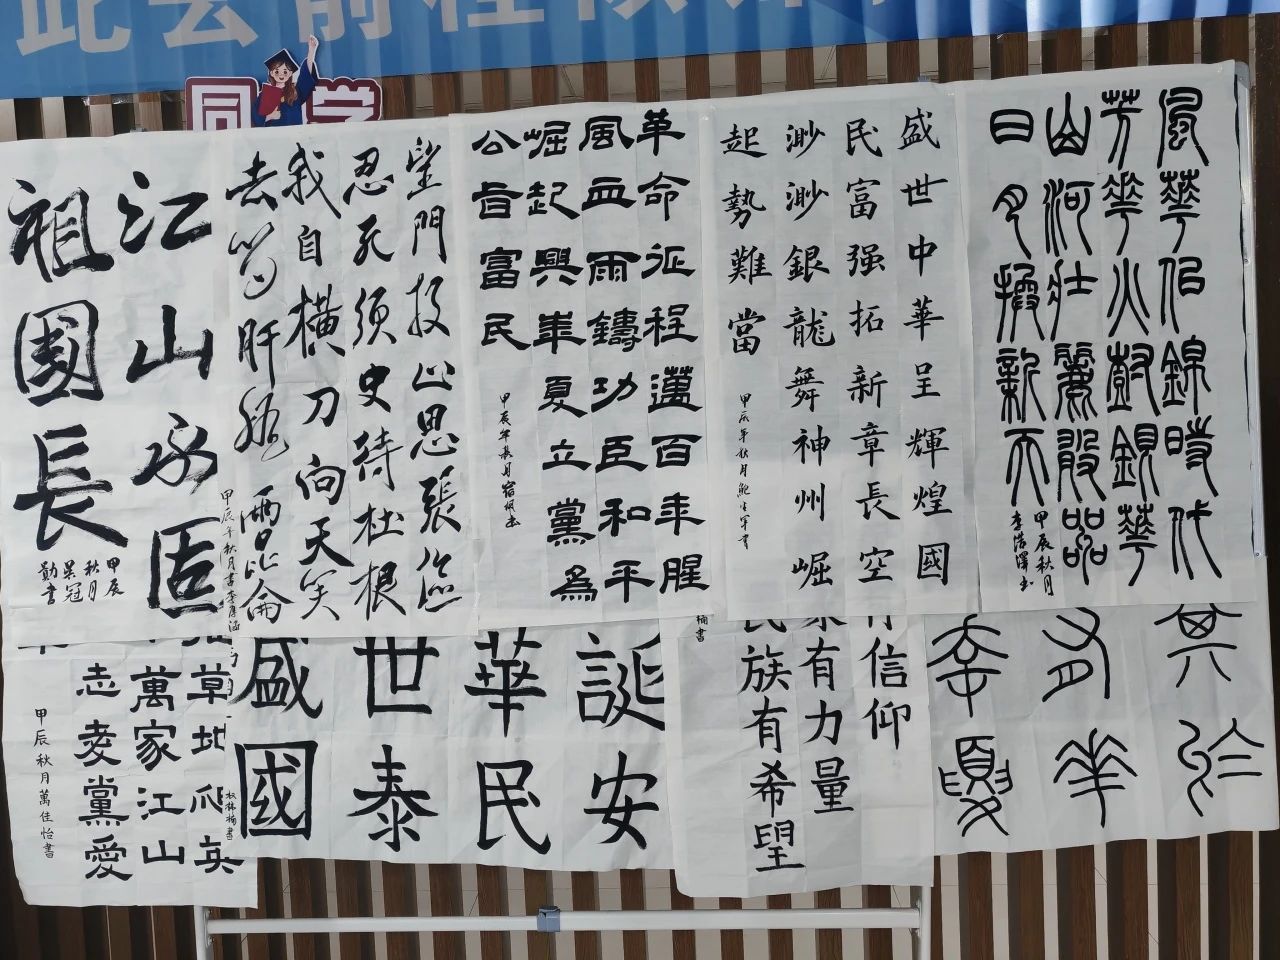 此去前程
同学
風華伯錦時代
芳華火樹銀華
山河壯麗殷
日月換新天
甲辰秋月
李浩澤書
盛世中華呈輝煌國
民富强拓新章長空
渺渺銀龍舞神州崛
起勢難當
甲辰年秋月
革命征程邁百年腥
風血雨鑄功臣和平
崛起興華夏立黨為
公旨富民
甲辰年秋月
望門投止思張儉
忍死須臾待杜根
我自橫刀向天笑
去留肝膽兩崑崙
甲辰年秋月書
江山永固
祖國長
甲辰
秋月
吳冠
勤書
有信仰
有力量
民族有希望
誕安
華民
世泰
盛國
草地爬
萬家江山
志黨愛
甲辰秋月萬佳怡書